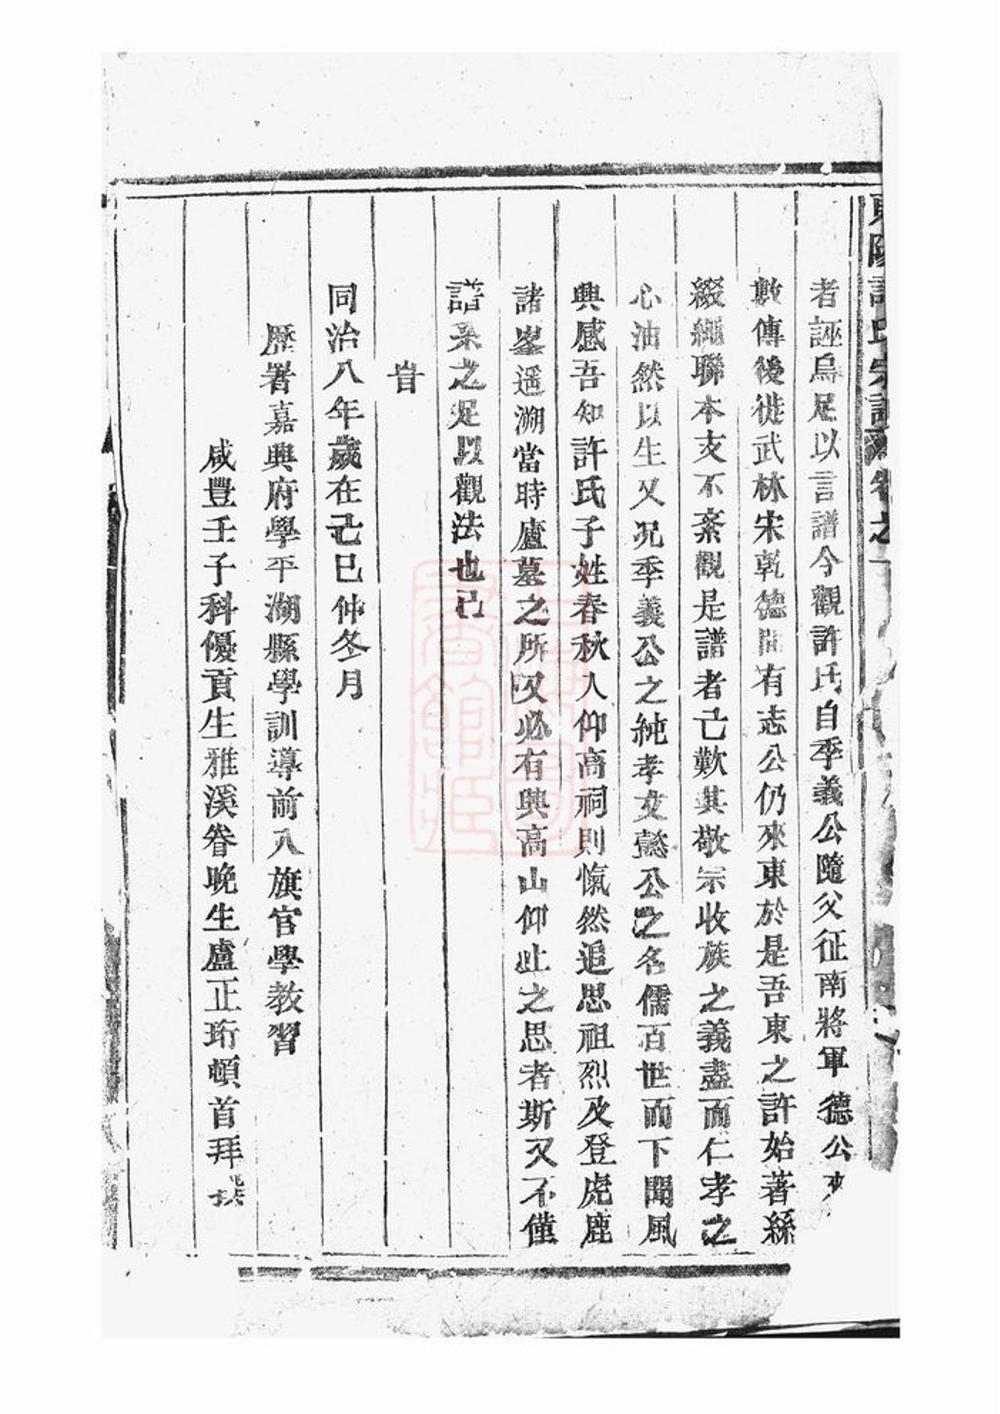 東陽許氏宗譜 卷之一
者誣烏足以言譜今觀許氏自季義公隨父征南將軍德公來
數傳後徙武林宋乾德間有志公仍來東於是吾東之許始著綿
綴繩聯本支不紊觀是譜者已歎其敬宗收族之義盡而仁孝之
心油然以生又況季義公之純孝文懿公之名儒百世而下聞風
興感吾知許氏子姓春秋入仰高祠則愾然追思祖烈及登虎鹿
諸峯遥溯當時廬墓之所又必有興高山仰止之思者斯又不僅
譜系之足以觀法也已
旹
同治八年歲在己巳仲冬月
歷署嘉興府學平湖縣學訓導前八旗官學教習
咸豐壬子科優貢生雅溪眷晚生盧正珩頓首拜撰